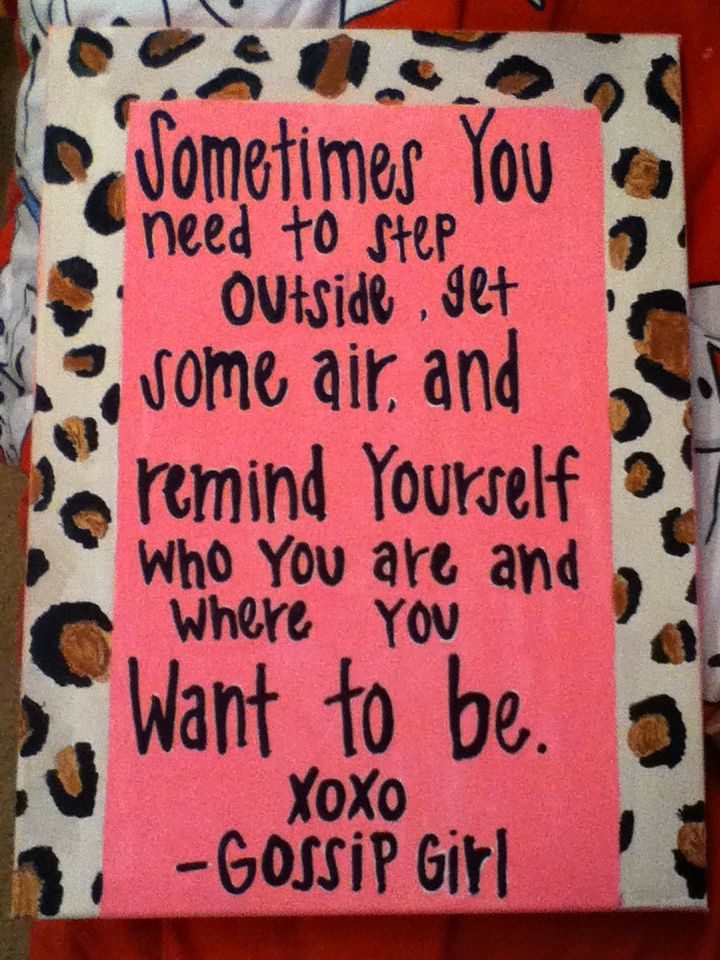 Sometimes You
need to step
outside, get
some air, and
remind Yourself
who You are and
where You
Want to be.
XOXO
-Gossip Girl